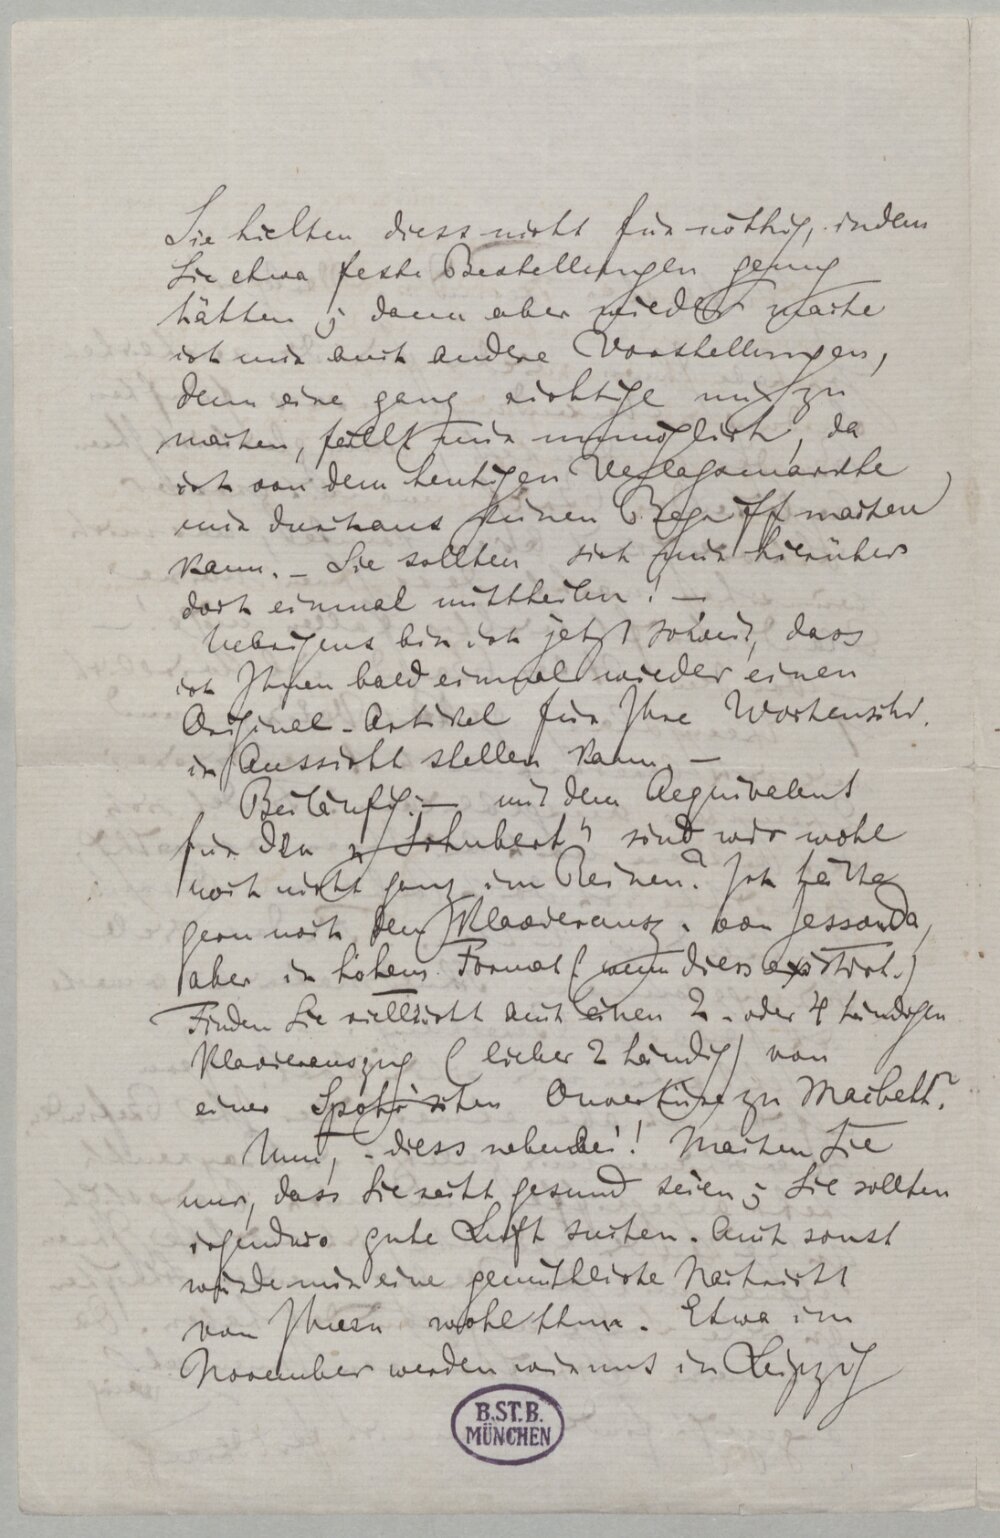 Sie hielten diess nicht für nöthig, indem
Sie etwa feste Bestellungen genug
hätten; dann aber wieder mache
ich mir auch andere Vorstellungen,
denn eine ganz richtige mir zu
machen, fällt mir unmöglich, da
ich von dem heutigen Verlagsmarkte
mir durchaus keinen Begriff machen
kann. – Sie sollten sich mir hierüber
doch einmal mittheilen! –
Uebrigens bin ich jetzt soweit, dass
ich Ihnen bald einmal wieder einen
Original-Artikel für Ihre Wochenschr.
in Aussicht stellen kann. –
Beiläufig: – mit dem Aequivalent
für den „Schubert“ sind wir wohl
noch nicht ganz im Reinen? Ich hätte
gern noch den Klavierausz. von Jessonda,
aber in hohem Format (wenn diess existirt.)
Finden Sie vielleicht auch einen 2- oder 4 händigen
Klavierauszug (lieber 2 händig) von
einer Spohr'schen Ouvertüre zu Macbeth?
Nun, – diess nebenbei! Machen Sie
nur, dass Sie recht gesund seien; Sie sollten
irgendwo gute Luft suchen. Auch sonst
würde mir eine gemüthliche Nachricht
von Ihnen wohl thun. Etwa im
November werden wir uns in Leipzig
B.ST.B.
MÜNCHEN